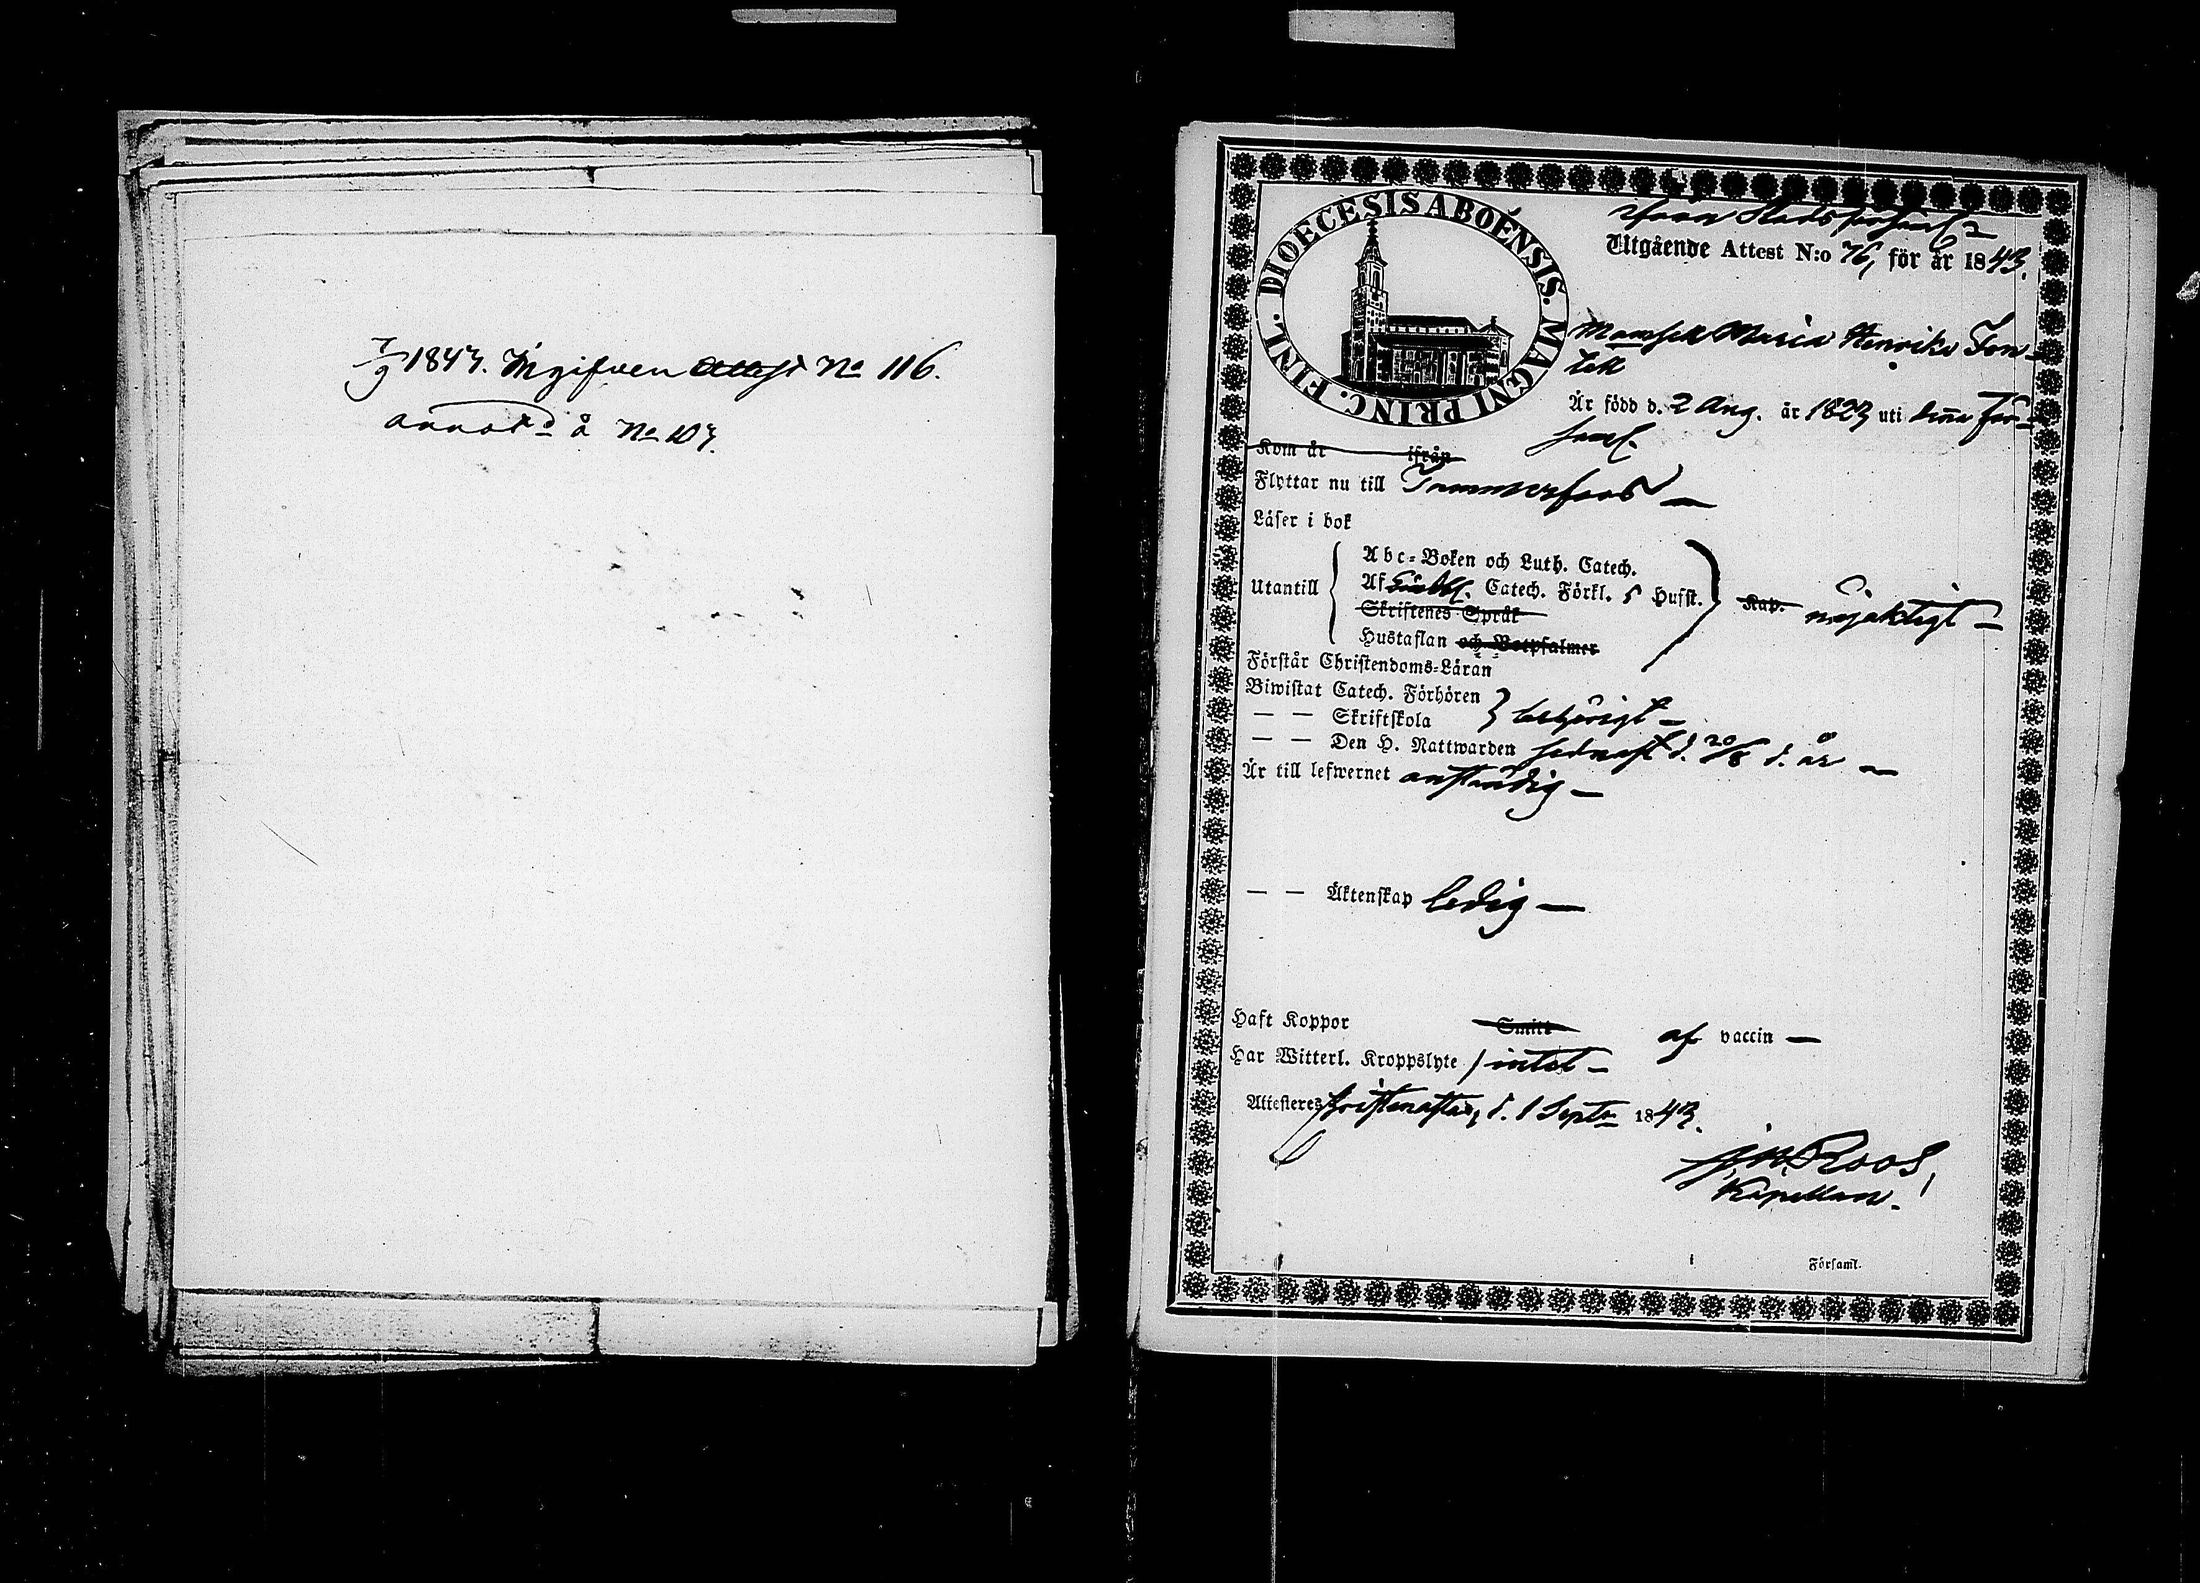 7/9 1843. Ingifven attest No 116.
annot:d å No 107.
DIOECESIS ABOËNSIS. MAGNI PRINC. FINL.
från Stadsförsaml
Utgående Attest N:o 76, för år 1843.
Mamsell Maria Henrika
Är född d. 2 Aug. år 1823 uti denna För-
saml.
Kom år ifrån
Flyttar nu till Tammerfors —
Läser i bok
Utantill
Abc-Boken och Luth. Catech.
Af Catech. Förkl. Hufst.
Skriftenes Språk
Hustaflan och Botpsalmer
Kap. nöjaktigt —
Förstår Christendoms-Läran
Biwistat Catech. Förhören
— — Skriftskola
behörigt —
— — Den H. Nattwarden sednast d. 20/8 d. år —
Är till lefwernet anständig —
— — Äktenskap ledig —
Haft Koppor Smitt af vaccin —
Har Witterl. Kroppslyte intet —
Attesteres Kristinestad, d. 1 Septr 1843.
Roos,
Kapellan.
Församl.